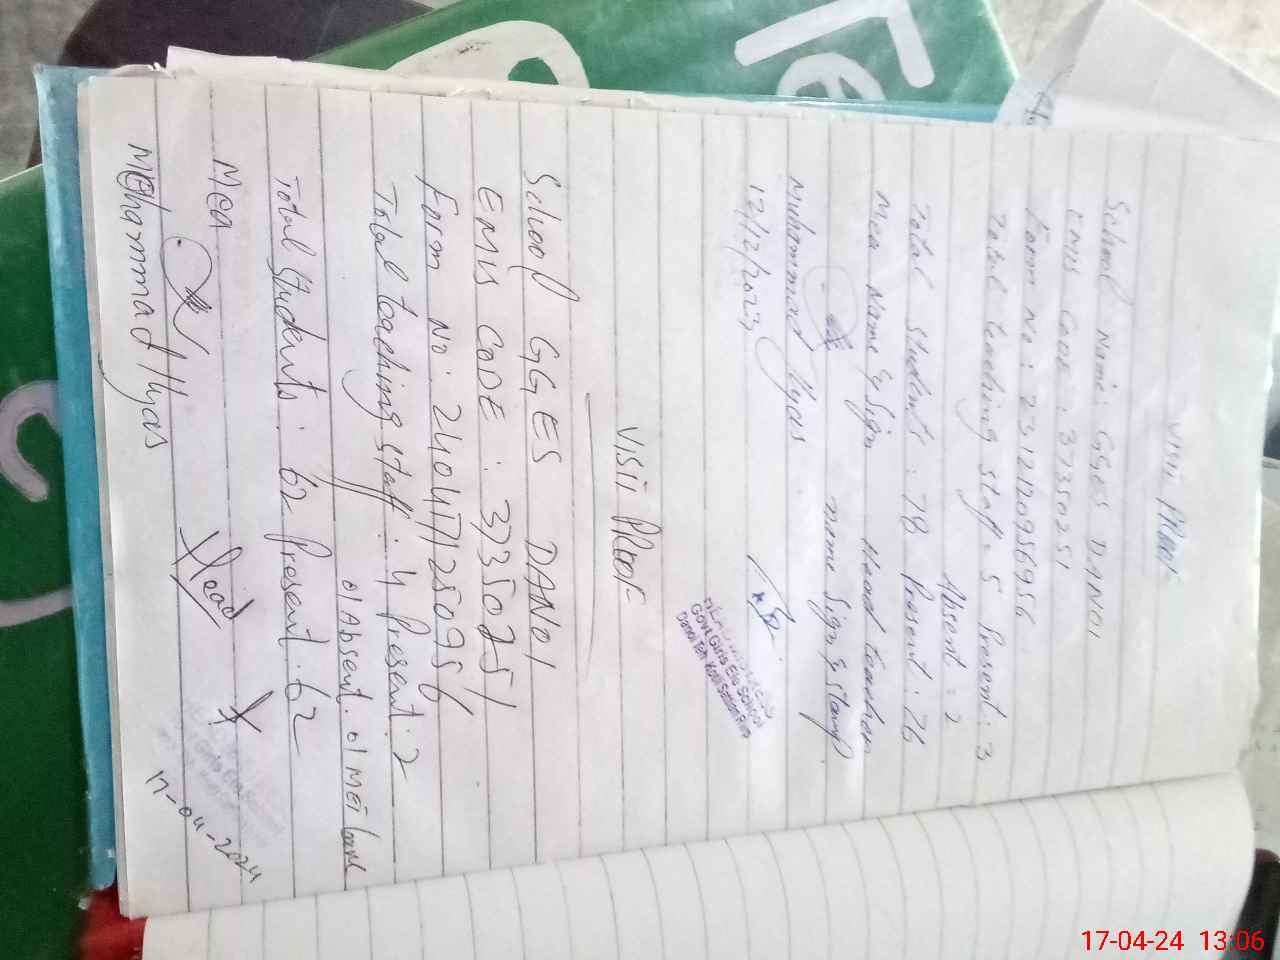 Visit Proof
School Name: GGES DANOI
EMIS CODE : 37350251
Form No : 2312120956956
Total teaching staff : 5 Present : 3
Absent = 2
Total Students : 78 Present : 76
Mea Name & Sign Head teacher
name Sign & Stamp
Muhammad Ilyas
12/12/2023
Govt Girls Ele School
VISIT PROOF
School GGES DANOI
EMIS CODE : 37350251
Form No : 2404171250956
Total teaching staff : 4 Present : 2
01 Absent . 01 MET Leave
Total Students : 62 Present : 62
Mea Head
Mohammad Ilyas
Girls Ele
17-04-2024
17-04-24 13:06